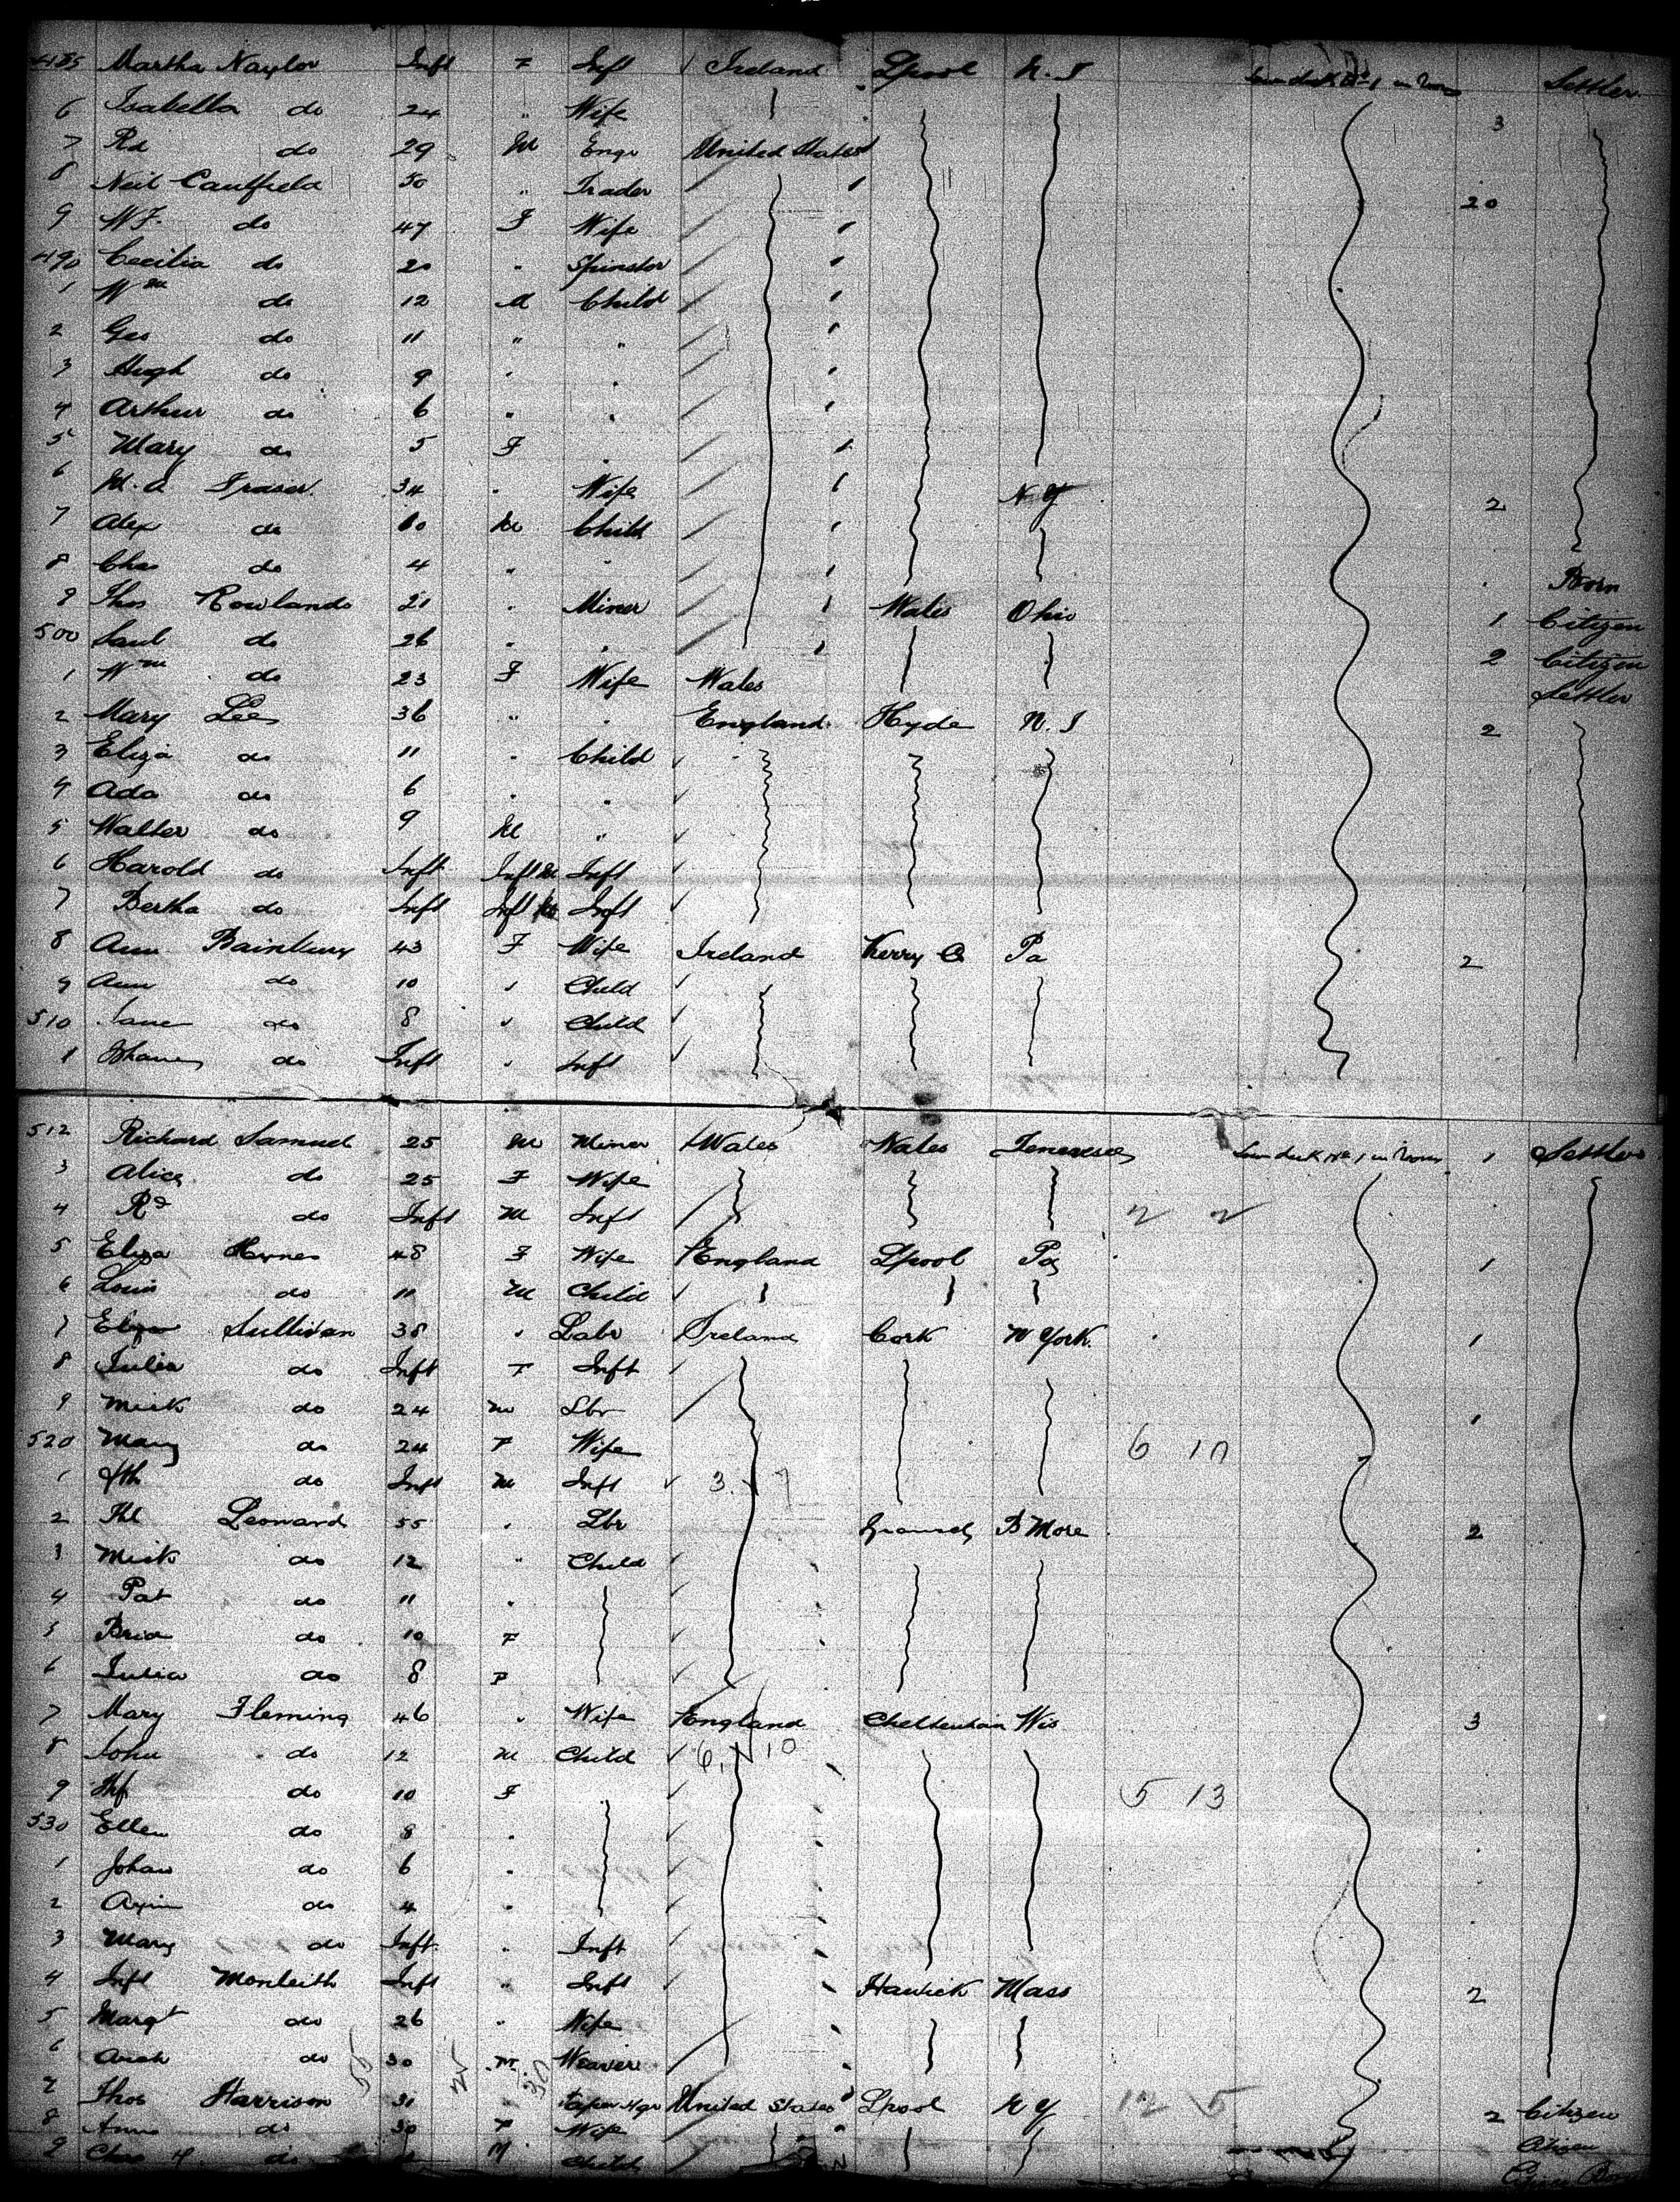 Martha Naylor Inft F Inft Ireland Lpool N.J Settler
6 Isabella do 24 " Wife 3
7 Rd do 29 M Engr United States
8 Neil Caulfield 50 " Trader 20
9 do 47 F Wife
490 Cecilia do 20 " Spinster
1 Wm do 12 M Child
2 Geo do 11 " "
3 Hugh do 9 " "
4 Arthur do 6 " "
5 Mary do 5 F "
6 Fraser 34 " Wife N.Y 2
7 Alex do 10 M Child
8 Chas do 4 " " Born
9 Thos Rowlands 21 " Miner Wales Ohio 1 Citizen
500 Saul do 26 " " 2 Citizen
1 Wm do 23 F Wife Wales Settler
2 Mary Lee 36 " " England Hyde N.J 2
3 Eliza do 11 " Child
4 Ada do 6 " "
5 Walter do 9 M "
6 Harold do Inft Inft M Inft
7 Bertha do Inft Inft Inft
8 Ann 43 F Wife Ireland Kerry Co Pa 2
9 Ann do 10 " Child
510 Jane do 8 " Child
1 do Inft " Inft
512 Richard Samuel 25 M Miner Wales Wales Tenessee 1 Settler
3 Alice do 25 F Wife
4 Rd do Inft M Inft
5 Eliza Hynes 48 F Wife England Lpool Pa 1
6 Louis do 11 M Child
7 Sullivan 38 " Labr Ireland Cork N York 1
8 Julia do Inft F Inft
9 Mick do 24 M Lbr 1
520 Mary do 24 F Wife 6 10
1 do Inft M Inft 3
2 Leonard 55 " Lbr B More 2
3 Mick do 12 " Child
4 Pat do 11 "
5 Brid do 10 F
6 Julia do 8 F
7 Mary Fleming 46 " Wife England Cheltenham Wis 3
8 John do 12 M Child 6 10
9 do 10 F 5 13
530 Ellen do 8 "
1 Johan do 6 "
2 do 4 "
3 Mary do Inft " Inft
4 Inft Monteith Inft " Inft Hawick Mass 2
5 Margt do 26 " Wife
6 Arch do 30 M Weaver
7 Thos Harrison 31 " Paper Hgr United States Lpool N Y 12 5 2 Citizen
8 Ann do 30 F Wife Citizen
9 Chas H. do M Child Citizen Born